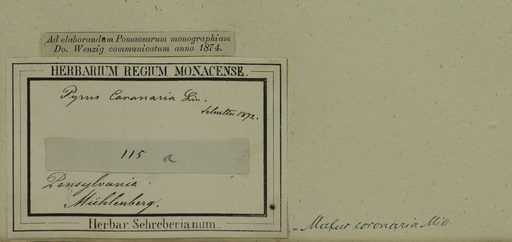 Ad elaborandam Pomacearum monographiam
Do. Wenzig communicatum anno 1874.
HERBARIUM REGIUM MONACENSE.
Pyrus Coronaria Lin.
1872.
115 a
Pensylvania.
Mühlenberg.
Herbar. Schreberianum.
Malus coronaria Mill